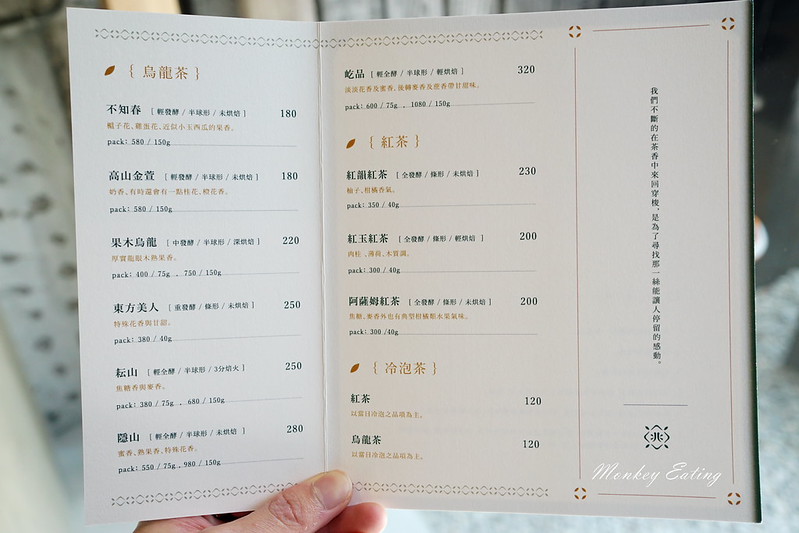 { 烏龍茶 }
不知春 [ 輕發酵 / 半球形 / 未烘焙 ] 180
梔子花、雞蛋花、近似小玉西瓜的果香。
pack: 580 / 150g
高山金萱 [ 輕發酵 / 半球形 / 未烘焙 ] 180
奶香、有時還會有一點桂花、橙花香。
pack: 580 / 150g
果木烏龍 [ 中發酵 / 半球形 / 深烘焙 ] 220
厚實龍眼木熟果香。
pack: 400 / 75g , 750 / 150g
東方美人 [ 重發酵 / 條形 / 未烘焙 ] 250
特殊花香與甘甜。
pack: 380 / 40g
耘山 [ 輕全酵 / 半球形 / 3分焙火 ] 250
焦糖香與麥香。
pack: 380 / 75g , 680 / 150g
隱山 [ 輕全酵 / 半球形 / 未烘焙 ] 280
蜜香、熟果香、特殊花香。
pack: 550 / 75g , 980 / 150g
屹品 [ 輕全酵 / 半球形 / 輕烘焙 ] 320
淡淡花香及蜜香、後轉麥香及蜜香帶甘甜味。
pack: 600 / 75g , 1080 / 150g
{ 紅茶 }
紅韻紅茶 [ 全發酵 / 條形 / 未烘焙 ] 230
柚子、柑橘香氣。
pack: 350 / 40g
紅玉紅茶 [ 全發酵 / 條形 / 輕烘焙 ] 200
肉桂、薄荷、木質調。
pack: 300 / 40g
阿薩姆紅茶 [ 全發酵 / 條形 / 未烘焙 ] 200
焦糖、麥香外也有典型柑橘類水果氣味。
pack: 300 /40g
{ 冷泡茶 }
紅茶 120
以當日冷泡之品項為主。
烏龍茶 120
以當日冷泡之品項為主。
我們不斷的在茶香中來回穿梭，是為了尋找那一絲能讓人停留的感動。
兆
Monkey Eating